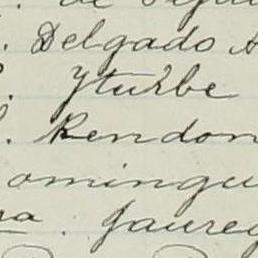 Delgado
Yturbe
Rendon
omingu
Jaureg